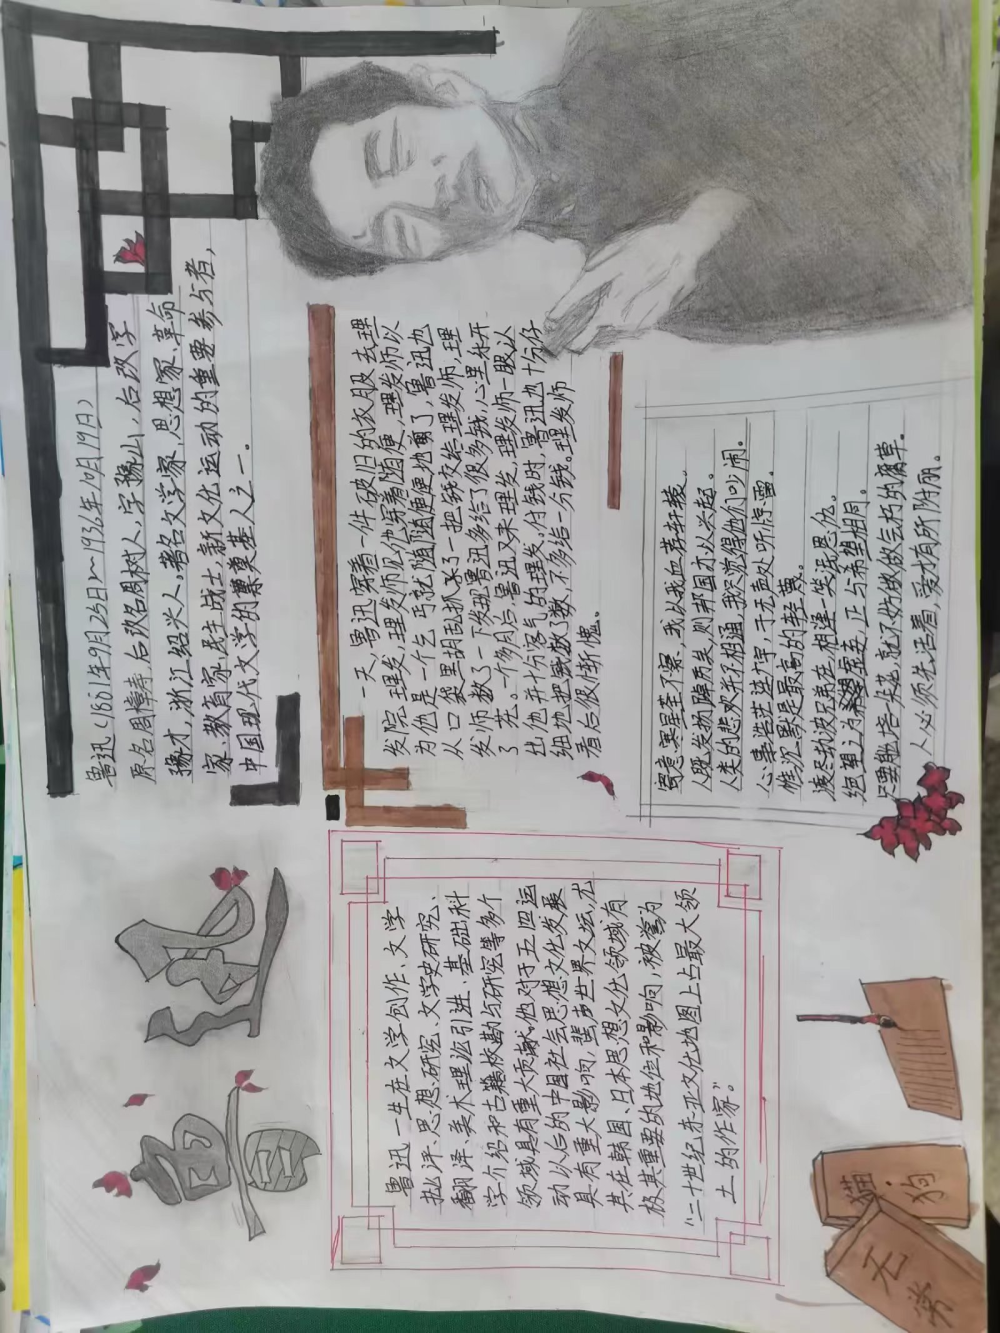 鲁迅
鲁迅(1881年9月25日～1936年10月19日)
原名周樟寿,后改名周树人,字豫山,后改字
豫才,浙江绍兴人。著名文学家、思想家、革命
家、教育家、民主战士,新文化运动的重要参与者,
中国现代文学的奠基人之一。
鲁迅一生在文学创作、文学
批评、思想研究、文学史研究、
翻译、美术理论引进、基础科
学介绍和古籍校勘与研究等多个
领域具有重大贡献。他对于五四运
动以后的中国社会思想文化发展
具有重大影响,蜚声世界文坛,尤
其在韩国、日本思想文化领域有
极其重要的地位和影响,被誉为
“二十世纪东亚文化地图上占最大领
土的作家。”
一天,鲁迅穿着一件破旧的衣服去理
发院理发,理发师见他穿着随便,理发师以
为他是一个乞丐就随随便便地剪了,鲁迅也
从口袋里胡乱抓了一把钱交给理发师,理
发师数了一下发现鲁迅多给了很多钱,心里乐开
了花。一个多月后,鲁迅又来理发,理发师一眼认
出他并十份客气的理发。付钱时,鲁迅也十份仔
细地把钱数了数,不多给一分钱。理发师
看后很惭愧。
寄意寒星荃不察,我以我血荐轩辕。
人既发扬踔厉矣,则邦国亦以兴起。
人类的悲欢并不相通,我只觉得他们吵闹。
心事浩茫连广宇,于无声处听惊雷。
惟沉默是最高的轻蔑。
渡尽劫波兄弟在,相逢一笑泯恩仇。
绝望之为虚妄,正与希望相同。
人必须先活着,爱才有所附丽。
猫·狗
无常